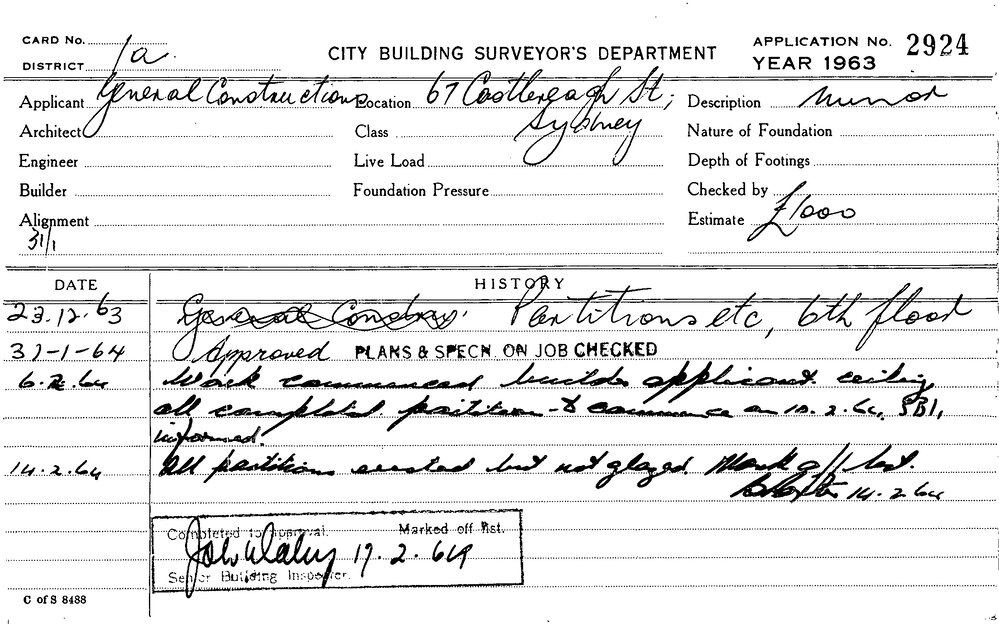 CARD No.
DISTRICT 1a.
CITY BUILDING SURVEYOR'S DEPARTMENT
APPLICATION No. 2924
YEAR 1963
Applicant General Constructions Location 67 Castlereagh St; Description Minor
Architect Class Sydney Nature of Foundation
Engineer Live Load Depth of Footings
Builder Foundation Pressure Checked by
Alignment Estimate £1000
31/1
DATE HISTORY
23.12.63 General Constrs. Partitions etc, 6th floor
31-1-64 Approved PLANS & SPECN. ON JOB CHECKED
6.2.64 Work commenced builder applicant. ceiling
all completed. partition to commence on 10.2.64. SBI,
informed
14.2.64 All partitions erected but not glazed. Mark off list.
14.2.64
Completed to approval. Marked off list.
John Daley 17.2.64
Senior Building Inspector.
C of S 8488